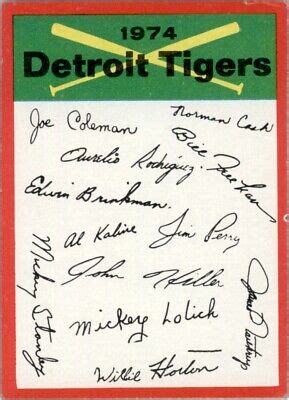 1974
Detroit Tigers
Joe Coleman
Norman Cash
Bill Freehan
Aurelio Rodriguez
Edwin Brinkman.
Al Kaline
Jim Perry
John Hiller
Mickey Stanley
Mickey Lolich
James Northrup
Willie Horton